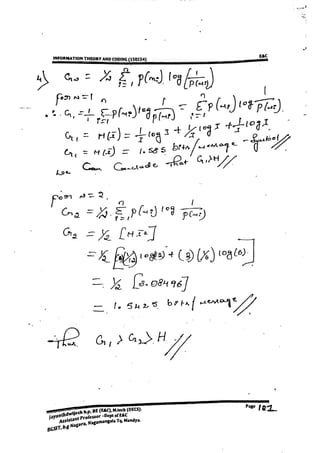 INFORMATION THEORY AND CODING (15EC54) E&C
4) G_N = 1/N Σ_{i=1}^{n} p(m_i) log [1/p(m_i)]
for N=1
∴ G_1 = 1/1 Σ_{i=1}^{n} P(m_i) log 1/P(m_i) = Σ_{i=1}^{n} P(m_i) log 1/P(m_i)
G_1 = H(s̄) = 1/3 log 3 + 1/3 log 3 + 1/3 log 3
G_1 = H(s̄) = 1.585 bits/message - symbol //
We Can Conclude that G_1 > H //
for N=2.
G_2 = 1/2 Σ_{i=1}^{n} p(m_i) log 1/p(m_i)
G_2 = 1/2 [H
log(6)]
= 1/2 [3.08496]
= 1.5425 bits/message //
Thus G_1 > G_2 > H //
Page
BE (E&C), M.tech (DECS).
Assistant Professor - Dept of E&C
BGSIT, b.g Nagara, Nagamangala Tq, Mandya.